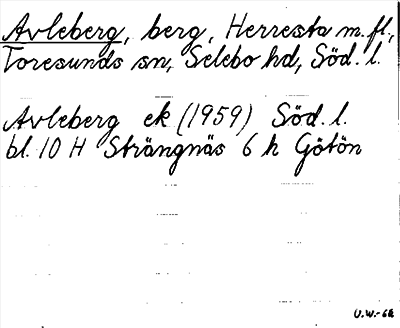 Avleberg, berg, Herresta m.fl.,
Toresunds sn, Selebo hd, Söd. l.
Avleberg ek (1959) Söd. l.
bl. 10 H Strängnäs 6 h Götön
U.W.-62